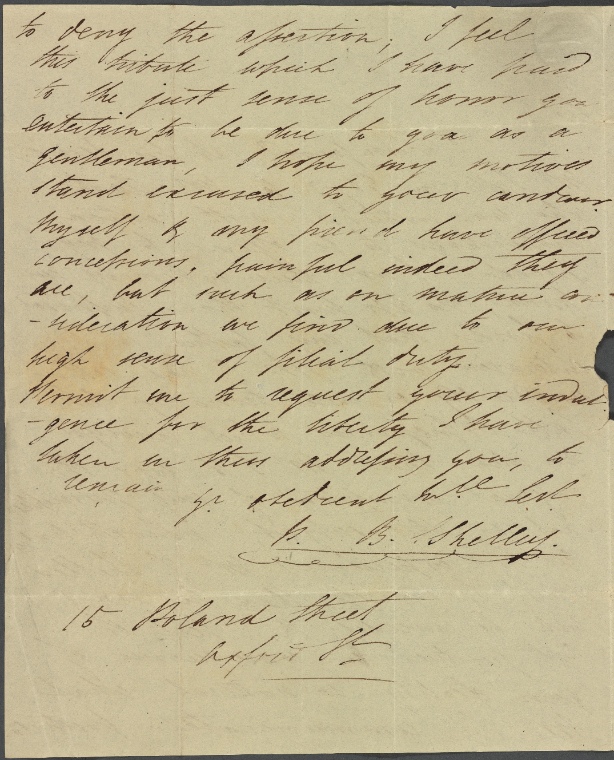 to deny the assertion; I feel
this tribute which I have paid
to the just sense of honor you
entertain to be due to you as a
gentleman, I hope my motives
stand excused to your candour
Myself & my friend have offered
concessions, painful indeed they
are, but such as on mature con-
-sideration we find due to our
high sense of filial duty.
Permit me to request your indul-
-gence for the liberty I have
taken in thus addressing you, to
remain yr. obedient hble Sert
P. B. Shelley.
15 Poland Street
Oxford St